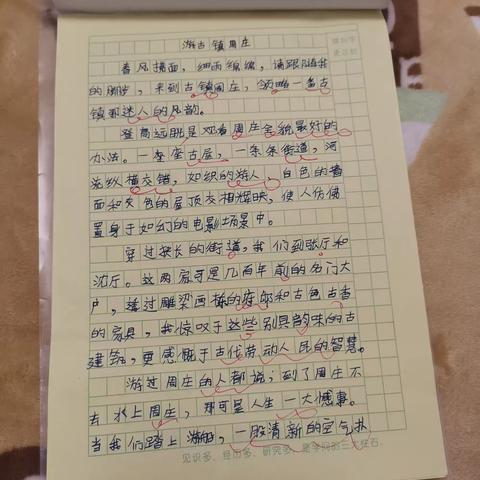 游古镇周庄
春风拂面，细雨绵绵，请跟随我
的脚步，来到古镇周庄，领略一番古
镇那迷人的风韵。
登高远眺是观看周庄全貌最好的
办法。一座座古屋，一条条街道，河
流纵横交错，如织的游人，白色的墙
面和灰色的屋顶交相辉映，使人仿佛
置身于如幻的电影场景中。
穿过狭长的街道，我们到张厅和
沈厅。这两家可是几百年前的名门大
户，透过雕梁画栋的府邸和古色古香
的家具，我惊叹于这些别具韵味的古
建筑，更感慨于古代劳动人民的智慧。
游过周庄的人都说；到了周庄不
去水上周庄，那可是人生一大憾事。
当我们踏上游船，一股清新的空气扑
见识多、经历多、研究多，是学问的三大柱石。